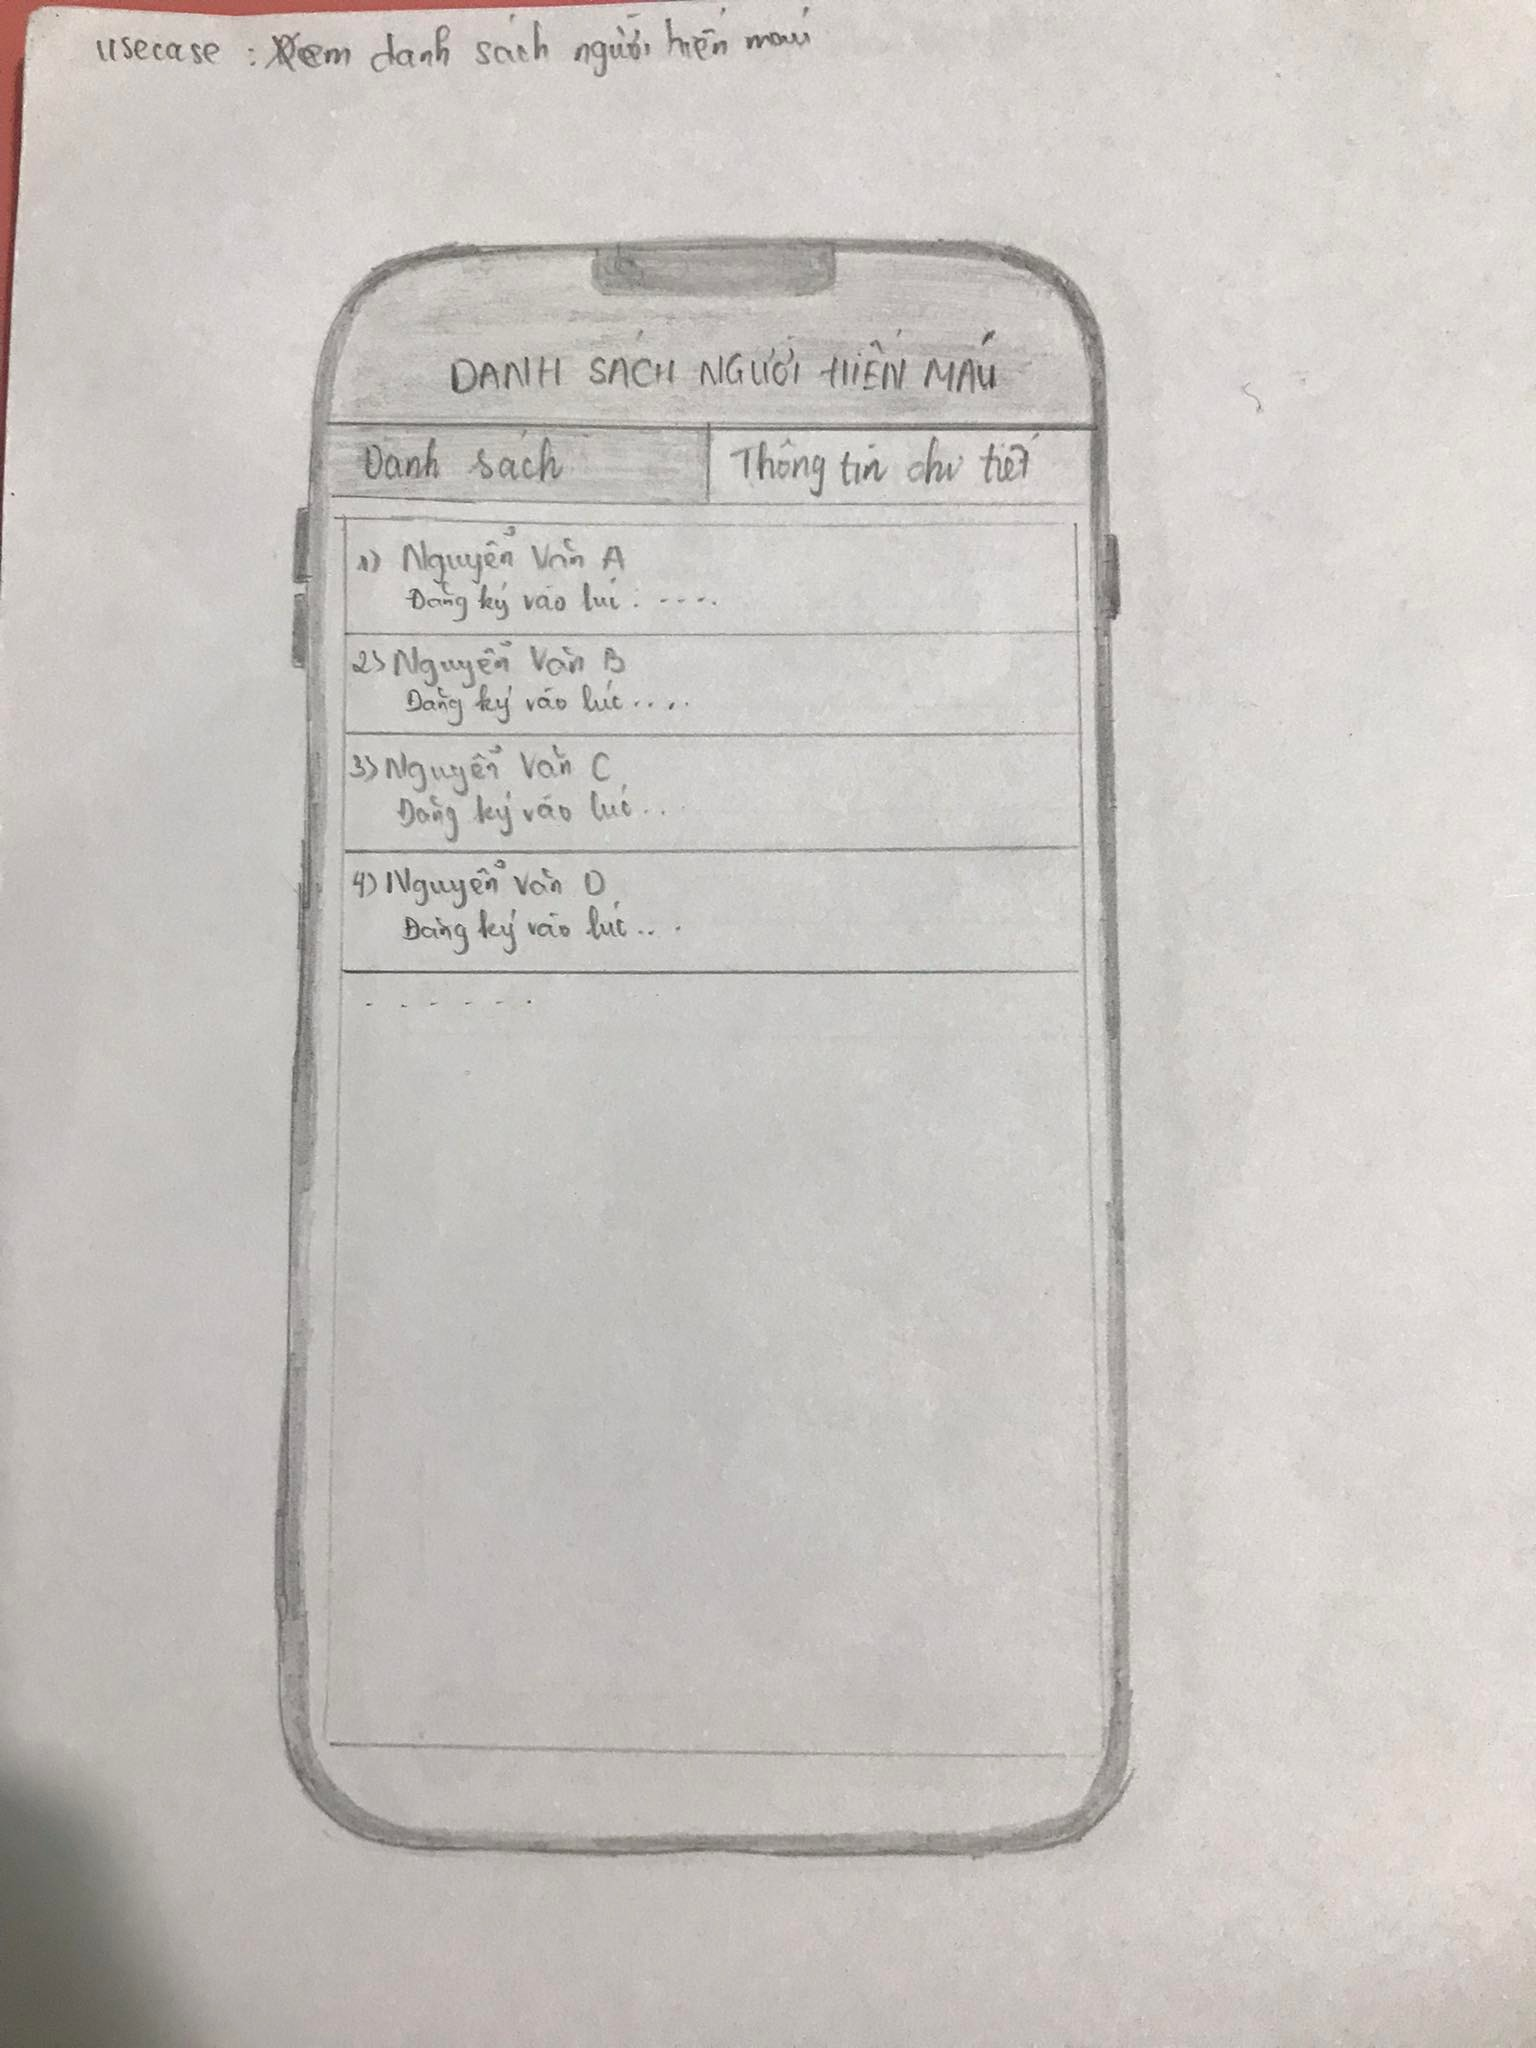 usecase : Xem danh sách người hiến máu
DANH SÁCH NGƯỜI HIẾN MÁU
Danh sách
Thông tin chi tiết
1) Nguyễn Văn A
Đăng ký vào lúc : ....
2) Nguyễn Văn B
Đăng ký vào lúc ....
3) Nguyễn Văn C
Đăng ký vào lúc ...
4) Nguyễn Văn D
Đăng ký vào lúc ...
......